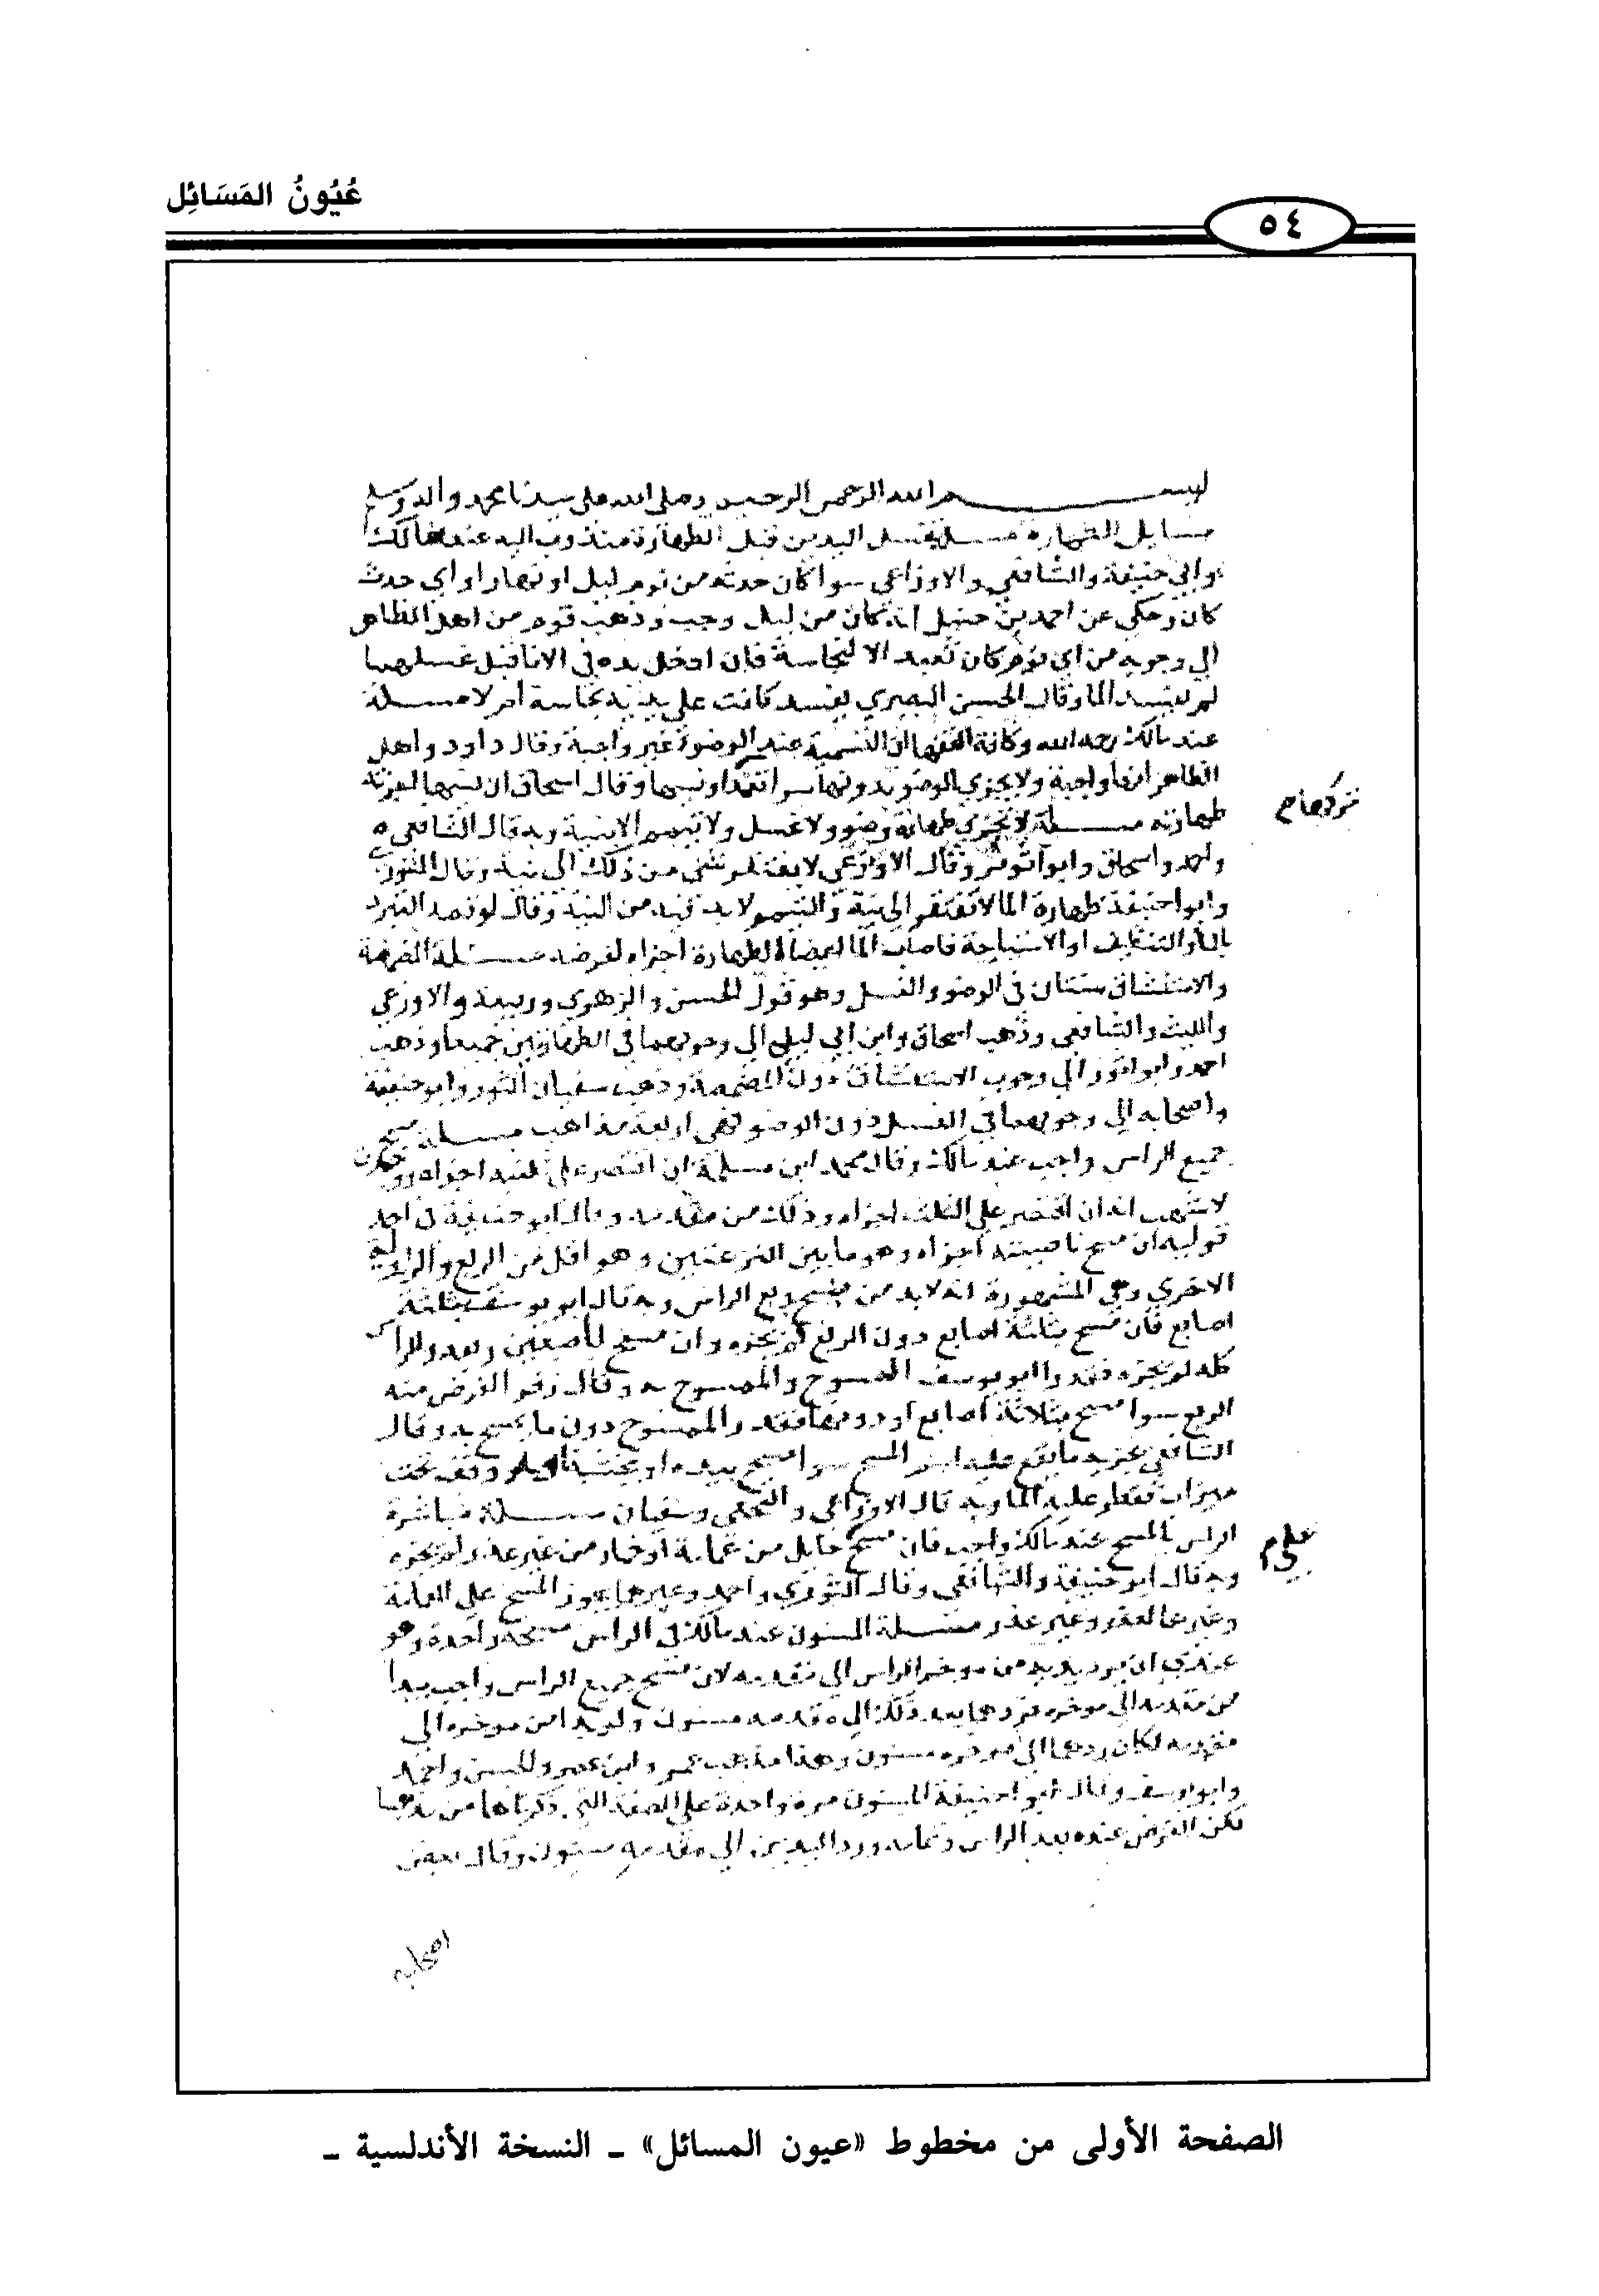 عُيُونُ المَسَائِل
٥٤
بسم الله الرحمن الرحيم وصلى الله على سيدنا محمد واله وسلم
مسايل الطهارة مسلة غسل اليدين قبل الطهارة مندوب اليه عند مالك
وابي حنيفة والشافعي والاوزاعي سوا كان حدثه من نوم ليل او نهار او اي حدث
كان وحكي عن احمد بن حنبل انه كان من ليل وجب وذهب قوم من اهل الظاهر
الى وجوبه من اي نوم كان تعبد الا لنجاسة فان ادخل يده في الانا قبل غسلهما
لم يفسد الما وقال الحسن البصري يفسد كانت على يديه نجاسة ام لا مسلة
عند مالك رحمه الله وكافة الفقها ان التسمية عند الوضو غير واجبة وقال داود واهل
الظاهر انها واجبة ولا يجزي الوضو بدونها سوا تعمدا ونسيها وقال اسحاق ان نسيها لجزته
تركها م
طهارته مسلة لا تجزي طهارة وضو ولا غسل ولا تيمم الا بنية وبه قال الشافعي
واحمد واسحاق وابو ثور وقال الاوزعي لا يفتقر شي من ذلك الى نية وقال الثوري
وابو احنيفة طهارة الما لا تفتقر الى نية والتيمم لا بد فيه من النية وقال لو قصد التبرد
بالما والتنظيف او الاستباحة فاصاب الما اعضا الطهارة اجزاه لفرضه مسئلة المضمضة
والاستنشاق سنتان في الوضو والغسل وهو قول الحسن والزهري وربيعة والاوزعي
والليث والشافعي وذهب اسحاق وابن ابي ليلى الى وجوبهما في الطهارتين جميعا وذهب
احمد وابو ثور الى وجوب الاستنشاق دون المضمضة وذهب سفيان الثور وابو حنيفة
واصحابه الى وجوبهما في الغسل دون الوضو ففي اربعة مذاهب مسلة مسح
جميع الراس واجب عند مالك وقال محمد ابن مسلمة ان اقتصر على ثلثيه اجزاه
لاشهب انه ان اقتصر على الثلث اجزاه وذلك من مقدمه وقال ابو حنيفة في احد
قوليه ان مسح ناصيته اجزاه وهو ما بين النزعتين وهو اقل من الربع والرواية
الاخري وهي المشهورة انه لا بد من مسح ربع الراس وبه قال ابو يوسف بثلثة
اصابع فان مسح بثلثة اصابع دون الربع لم يجزه وان مسح باصبعين ربعه والراس
كله لم يجزه فقدر ابو يوسف الممسوح والممسوح به وقال زفر الفرض منه
الربع سوا مسح بثلاثة اصابع او دونها فقدر الممسوح دون ما يمسح به وقال
الشافعي يجزيه ما يقع عليه اسم المسح سوا مسح بيده او بخشبة او وقف تحت
ميزاب فقطر عليه الما وبه قال الاوزاعي والنخعي وسفيان مسلة مباشرة
الراس بالمسح عند مالك واجب فان مسح حايل من عمامة او خمار من غير عذر لم يجزه
على م
وبه قال ابو حنيفة والشافعي وقال الثوري واحمد وغيرهما يجوز المسح على العمامة
وغيرها لعذر وغير عذر مسلة المسنون عند مالك في الراس مسحة واحدة وهو
عندي ان يرد يديه من موخر الراس الى مقدمه لان مسح جميع الراس واجب يبدا
من مقدمه الى موخره فردهما بعد ذلك الى مقدمه مسنون ولو بدا من موخره الى
مقدمه لكان ردهما الى موخره مسنون وهذا مذهب عمر وابن عمر والحسن واحمد
وابو يوسف وقال ابو احنيفة المسنون مرة واحدة على الصفة التي ذكرناها من مذهبنا
لكن الفرض عنده بعد الراس ورد اليدين الى مقدمه مسنون وقال بعض
اصحابه
الصفحة الأولى من مخطوط «عيون المسائل» ـ النسخة الأندلسية ـ